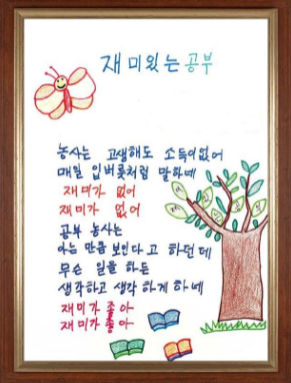 재미있는 공부
농사는 고생해도 소득이 없어
매일 입버릇처럼 말하네
재미가 없어
재미가 없어
공부 농사는
아는 만큼 보인다고 하던데
무슨 일을 하든
생각하고 생각하게 하네
재미가 좋아
재미가 좋아